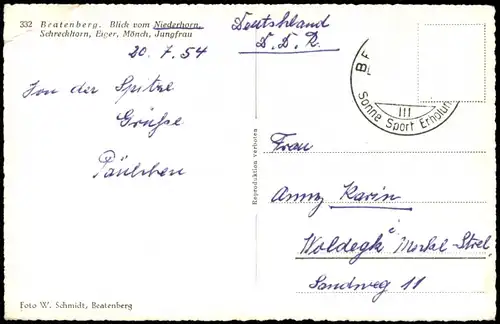 332 Beatenberg. Blick vom Niederhorn.
Schreckhorn, Eiger, Mönch, Jungfrau
20.7.54
Deutschland
D. D. R.
Von der Spitze
Grüsse
Paulchen
Reproduktion verboten
BE
Sonne Sport Erholun
III
Frau
Anny Karin
Woldegk i. Meckl-Strel.
Sandweg 11
Foto W. Schmidt, Beatenberg